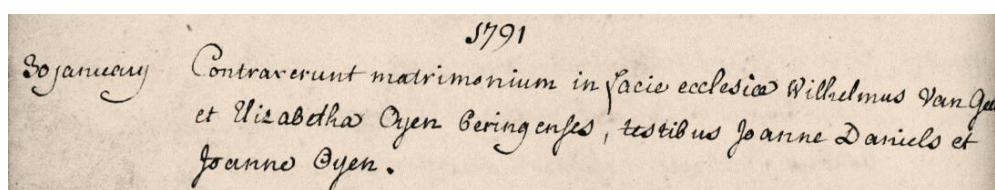 1791
30 january Contraxerunt matrimonium in facie ecclesiæ Wilhelmus Van
et Elizabetha Oyen Beringenses, testibus Joanne Daniels et
Joanne Oyen.